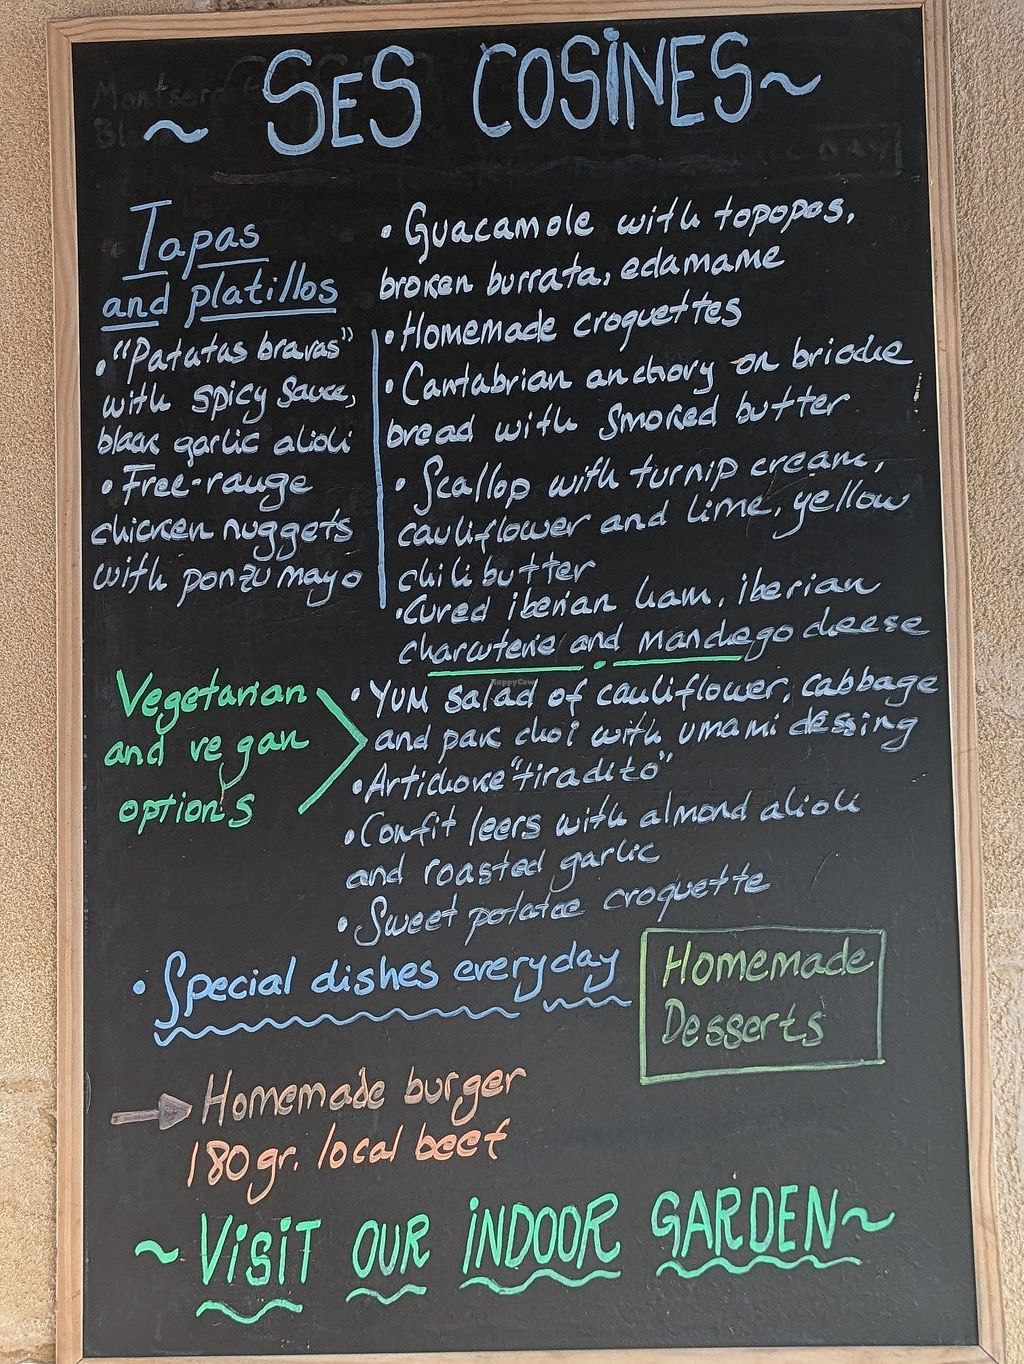 ~ SES COSINES ~
Tapas
and platillos
• "Patatas bravas"
with spicy sauce,
black garlic alioli
• Free-range
chicken nuggets
with ponzu mayo
• Guacamole with topopos,
broken burrata, edamame
• Homemade croquettes
• Cantabrian anchovy on brioche
bread with smoked butter
• Scallop with turnip cream,
cauliflower and lime, yellow
chili butter
• Cured iberian ham, iberian
charcuterie and manchego cheese
Vegetarian
and vegan
options
• YUM salad of cauliflower, cabbage
and pak choi with umami dessing
• Artichoke "tiradito"
• Confit leeks with almond alioli
and roasted garlic
• Sweet potatoe croquette
• Special dishes everyday
Homemade
Desserts
Homemade burger
180gr. local beef
~ VISIT OUR INDOOR GARDEN ~
HappyCow